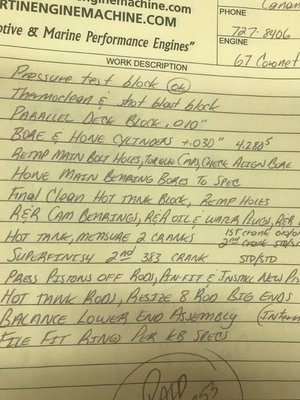 RTINENGINEMACHINE.COM
PHONE
727-8406
otive & Marine Performance Engines"
ENGINE
67 Coronet
WORK DESCRIPTION
Pressure test block OK
Thermoclean & shot blast block
Parallel Deck Block, .010"
Bore & Hone Cylinders +.030" 4.280s
Retap Main Bolt Holes, Torque Caps, Check Align Bore
Hone Main Bearing Bores to Spec
Final Clean Hot Tank Block, Retap Holes
R&R Cam Bearings, R&R Oil & Water Plugs, R&R
Hot Tank, Measure 2 Cranks 1st crank
2nd crank STD/
Superfinish 2nd 383 Crank STD/STD
Press Pistons off Rods, An-Fit & Install New
Hot Tank Rods, Resize 8 Rod Big Ends
Balance Lower End Assembly
File Fit Rings Per KB Specs
PAID